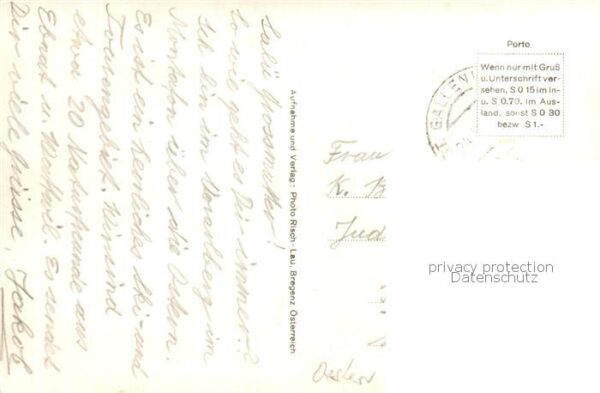 Salü Grossmutter!
So wie geht es Dir immer?
Ich bin im Vorarlberg im
Montafon über die Ostern.
Es ist ein herrliches Ski- und
Tourengebiet. Wir sind
etwa 20 Naturfreunde aus
Ebnat u. Wattwil. Es sendet
Dir viele Grüsse, Jakob
Aufnahme und Verlag: Photo Risch-Lau, Bregenz Österreich
Porto
Wenn nur mit Gruß
u. Unterschrift ver-
sehen, S 0 15 im In-
u. S 0.70. im Aus-
land, sonst S 0 30
bezw S 1.-
GALLEN
Frau
K. B
Jud
privacy protection
Datenschutz